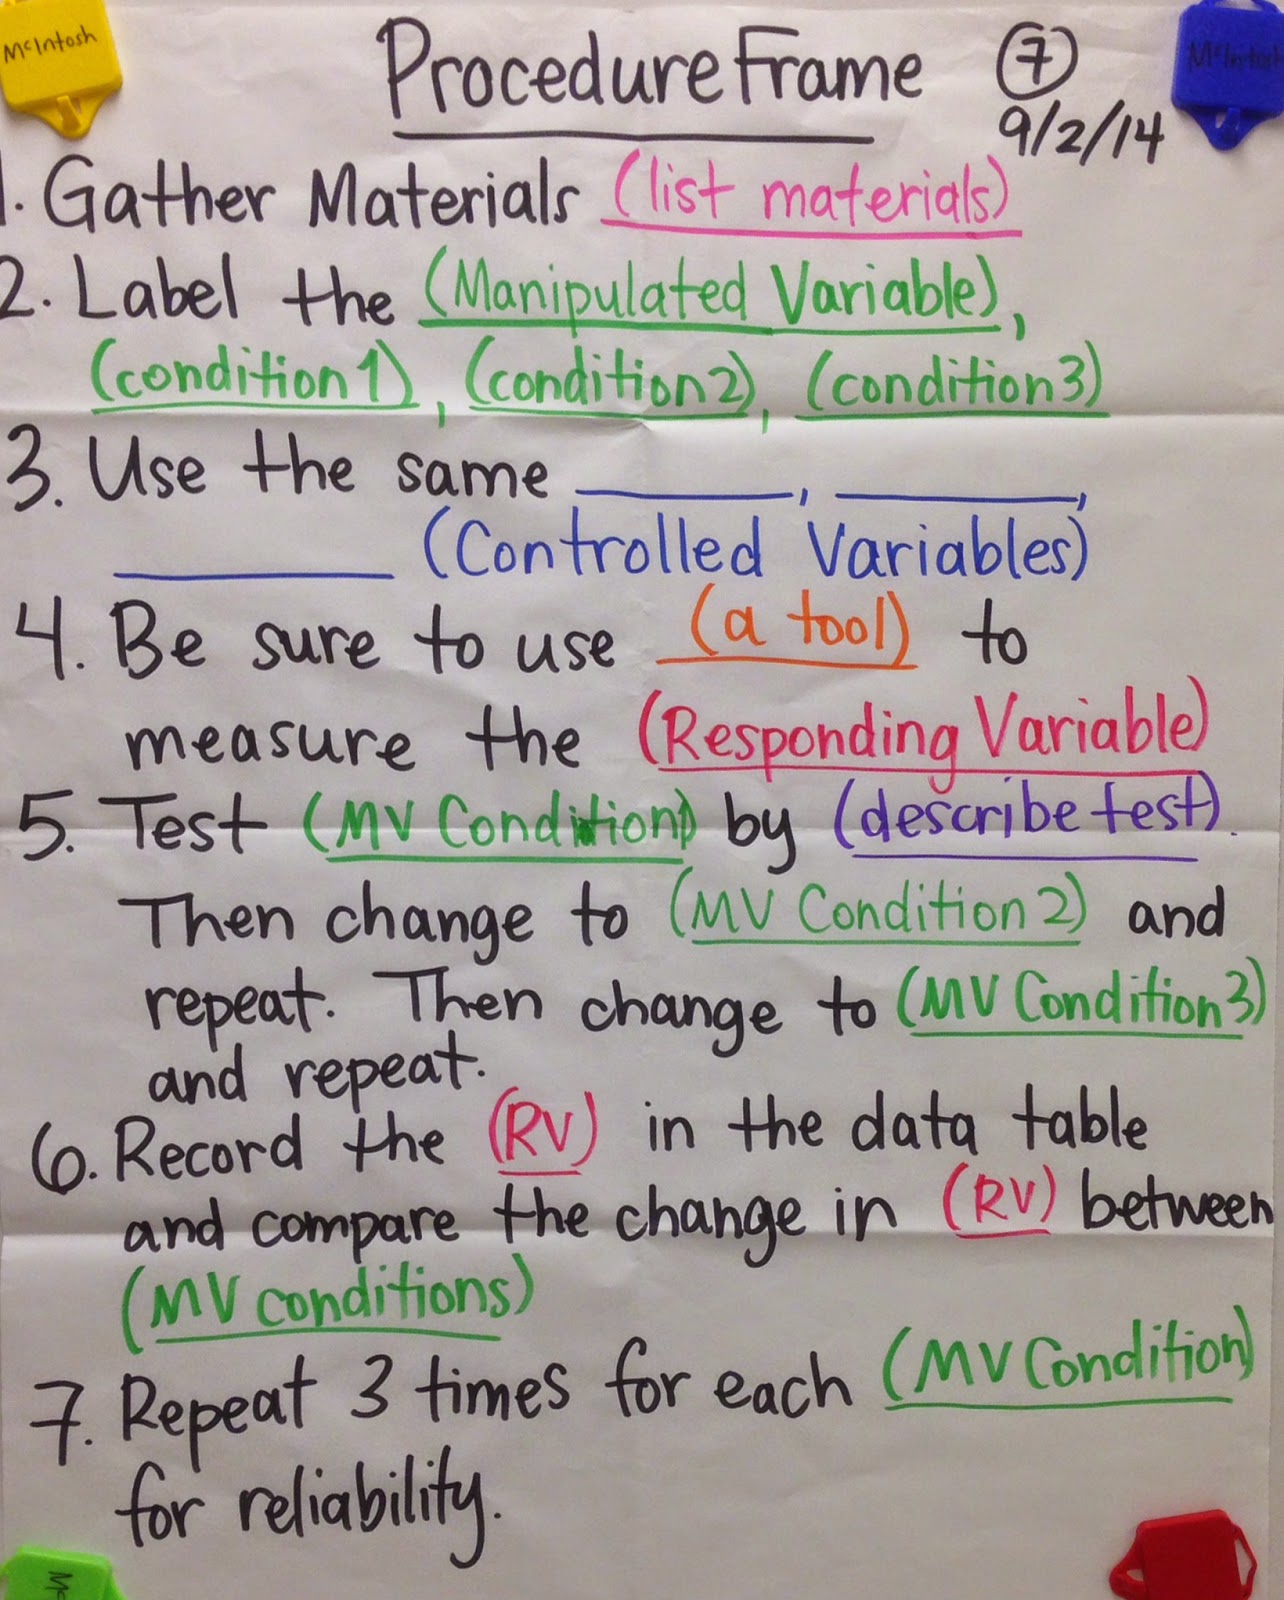 McIntosh
McIntosh
Procedure Frame 7
9/2/14
1. Gather Materials (list materials)
2. Label the (Manipulated Variable),
(condition 1), (condition 2), (condition 3)
3. Use the same ________, ________,
________ (Controlled Variables)
4. Be sure to use (a tool) to
measure the (Responding Variable)
5. Test (MV Condition) by (describe test).
Then change to (MV Condition 2) and
repeat. Then change to (MV Condition 3)
and repeat.
6. Record the (RV) in the data table
and compare the change in (RV) between
(MV conditions)
7. Repeat 3 times for each (MV Condition)
for reliability.